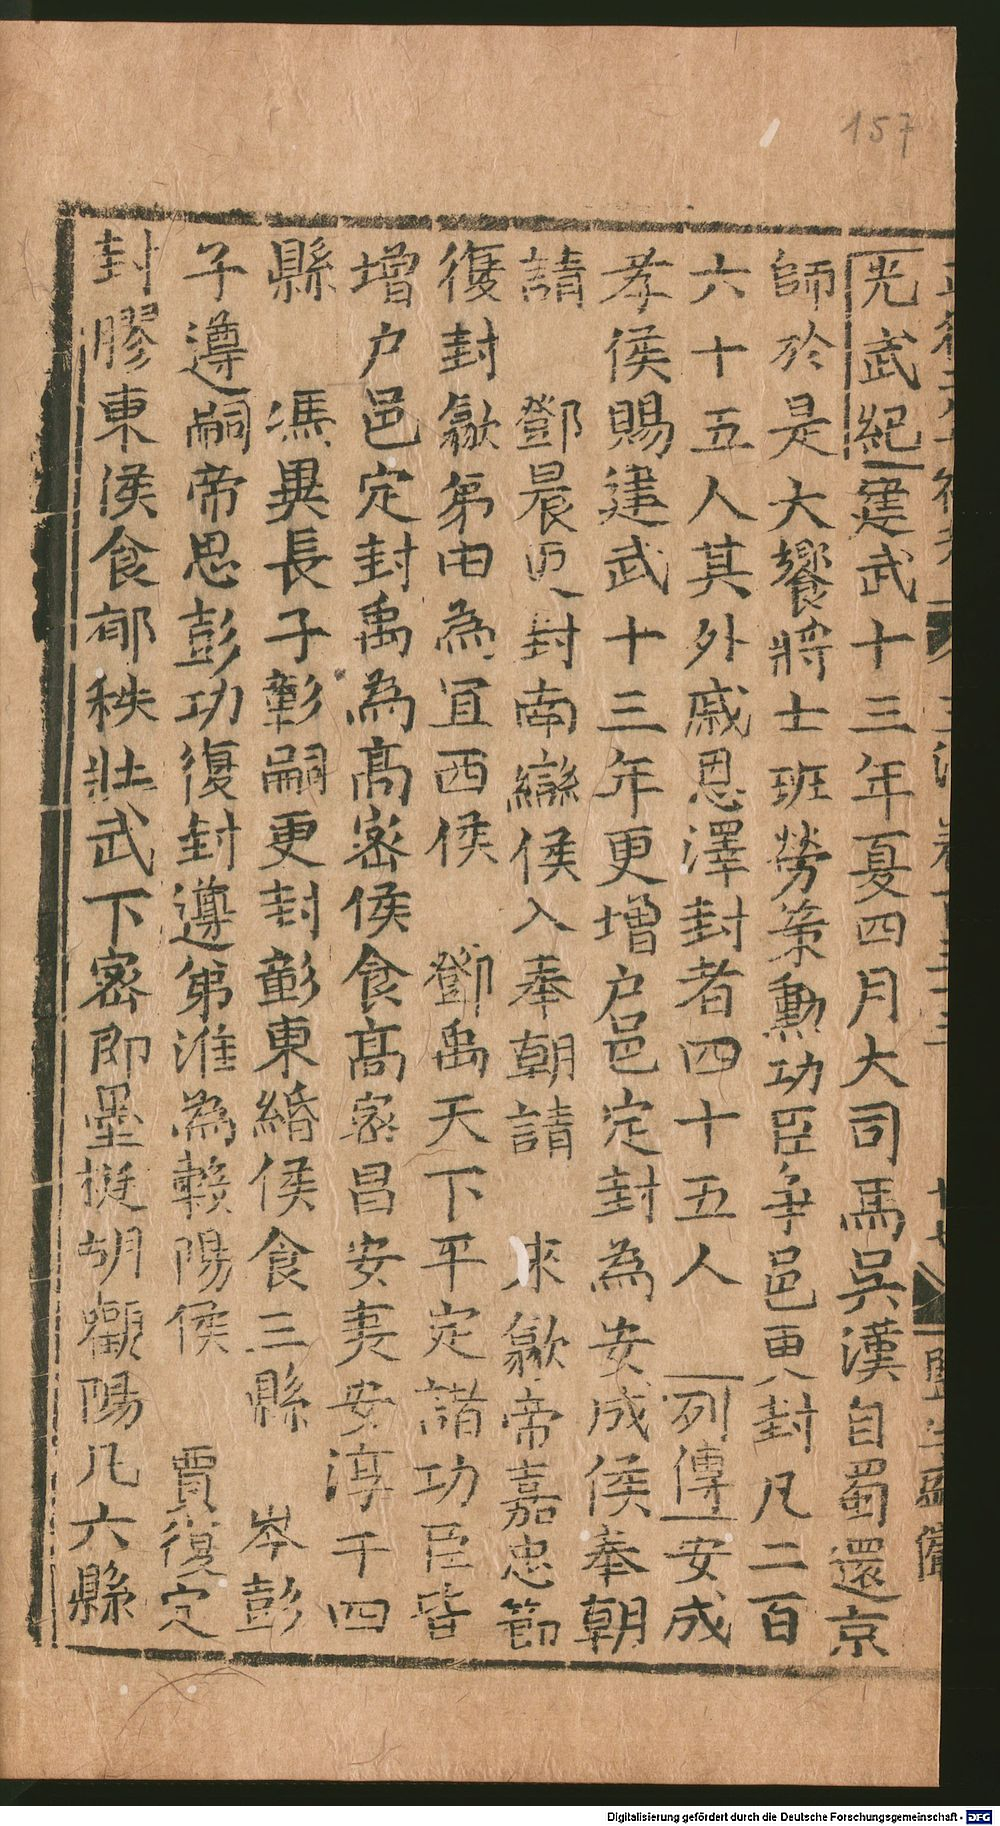 157
光武紀建武十三年夏四月大司馬吳漢自蜀還京
師於是大饗將士班勞策勳功臣爭邑更封凡二百
六十五人其外戚恩澤封者四十五人 列傳安成
孝侯賜建武十三年更增户邑定封為安成侯奉朝
請 鄧晨更封南䜌侯入奉朝請 來歙帝嘉忠節
復封歙弟由為宜西侯 鄧禹天下平定諸功臣皆
增户邑定封禹為高密侯食高密昌安夷安淳于四
縣 馮異長子彰嗣更封彰東緡侯食三縣 岑彭
子遵嗣帝思彭功復封遵弟淮為榖陽侯 賈復定
封膠東侯食郁秩壯武下密即墨挺胡觀陽凡六縣
Digitalisierung gefördert durch die Deutsche Forschungsgemeinschaft - DFG